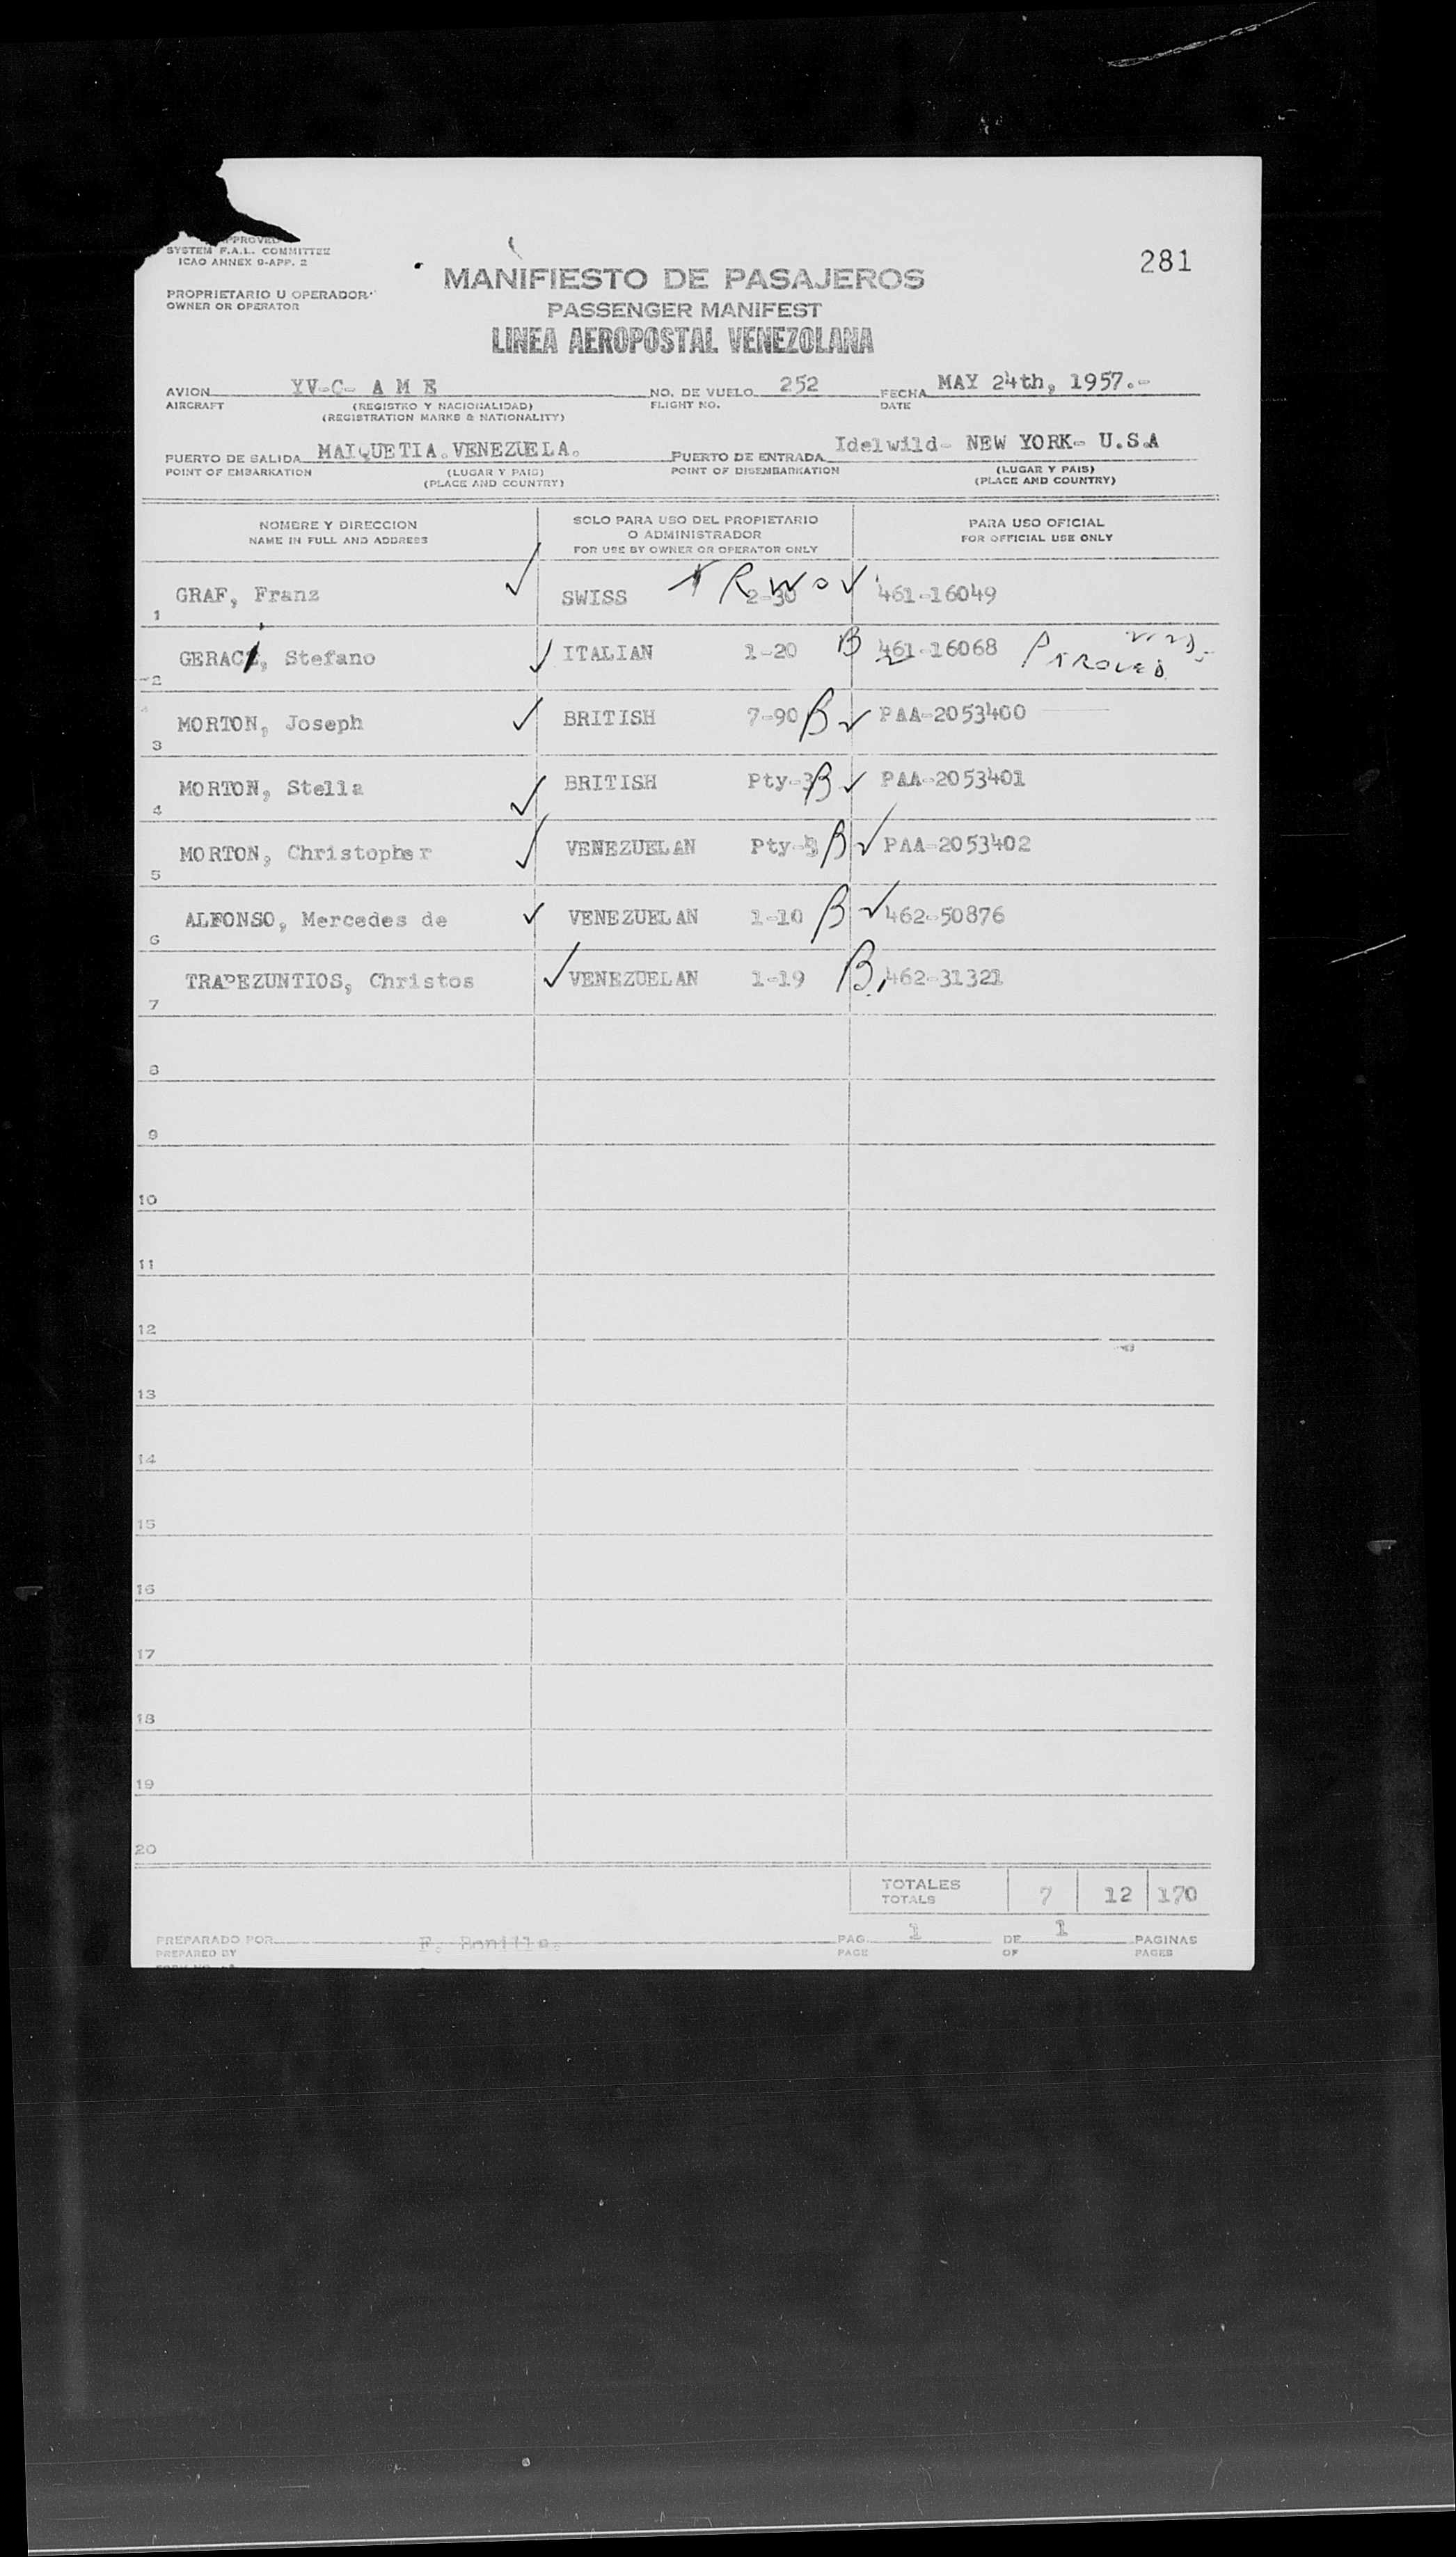 APPROVED
SYSTEM F.A.L. COMMITTEE
ICAO ANNEX 9-APP. 2
281
MANIFIESTO DE PASAJEROS
PROPRIETARIO U OPERADOR
OWNER OR OPERATOR
PASSENGER MANIFEST
LINEA AEROPOSTAL VENEZOLANA
AVION YV-C- A M E NO. DE VUELO 252 FECHA MAY 24th, 1957.-
AIRCRAFT (REGISTRO Y NACIONALIDAD) FLIGHT NO. DATE
(REGISTRATION MARKS & NATIONALITY)
PUERTO DE SALIDA MAIQUETIA.VENEZUELA. PUERTO DE ENTRADA Idelwild- NEW YORK- U.S.A
POINT OF EMBARKATION (LUGAR Y PAIS) POINT OF DISEMBARKATION (LUGAR Y PAIS)
(PLACE AND COUNTRY) (PLACE AND COUNTRY)
NOMBRE Y DIRECCION SOLO PARA USO DEL PROPIETARIO PARA USO OFICIAL
NAME IN FULL AND ADDRESS O ADMINISTRADOR FOR OFFICIAL USE ONLY
FOR USE BY OWNER OR OPERATOR ONLY
1 GRAF, Franz ✓ SWISS 2-30 R W O ✓ 461-16049
2 GERACI, Stefano ✓ ITALIAN 1-20 B 461-16068 PAROLED
3 MORTON, Joseph ✓ BRITISH 7-90 B ✓ PAA-2053400
4 MORTON, Stella ✓ BRITISH Pty-3 B ✓ PAA-2053401
5 MORTON, Christopher ✓ VENEZUELAN Pty- B ✓ PAA-2053402
6 ALFONSO, Mercedes de ✓ VENEZUELAN 1-10 B ✓ 462-50876
7 TRAPEZUNTIOS, Christos ✓ VENEZUELAN 1-19 B 462-31321
8
9
10
11
12
13
14
15
16
17
18
19
20
TOTALES 7 12 170
TOTALS
PREPARADO POR F. Bonilla. PAG. 1 DE 1 PAGINAS
PREPARED BY PAGE OF PAGES